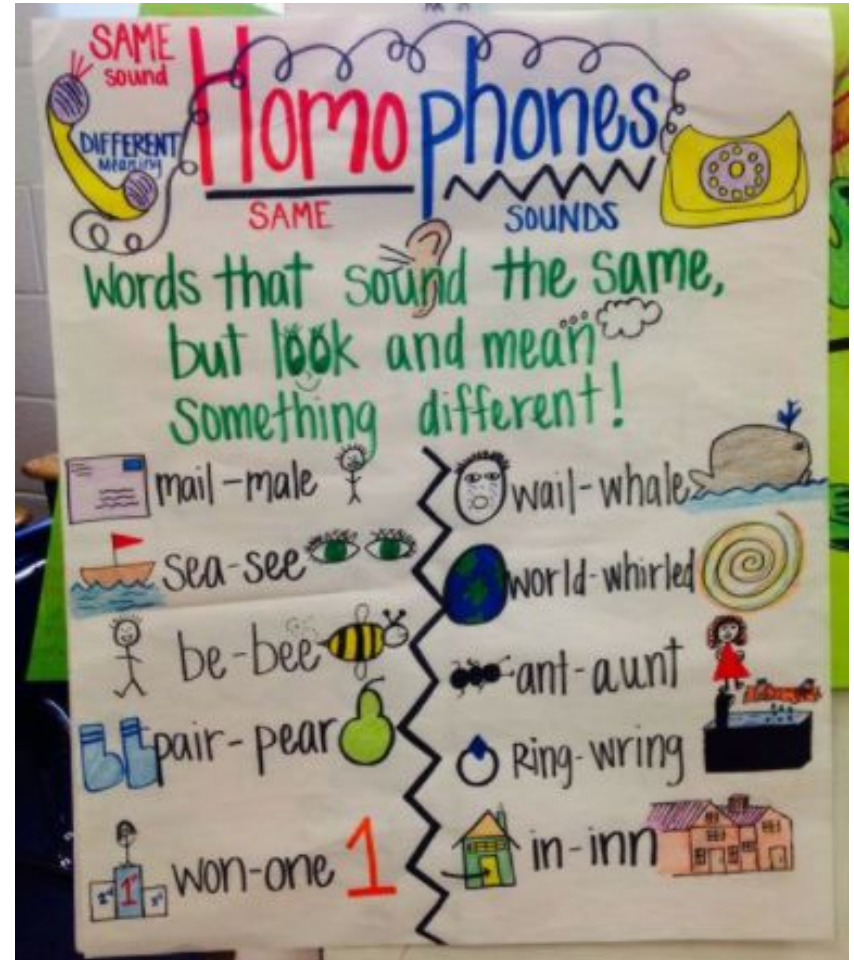 SAME
sound
DIFFERENT
Meaning
Homophones
SAME
SOUNDS
Words that sound the same,
but look and mean
something different!
mail-male
sea-see
be-bee
pair-pear
won-one 1
2nd 1st 3rd
wail-whale
world-whirled
ant-aunt
Ring-wring
in-inn